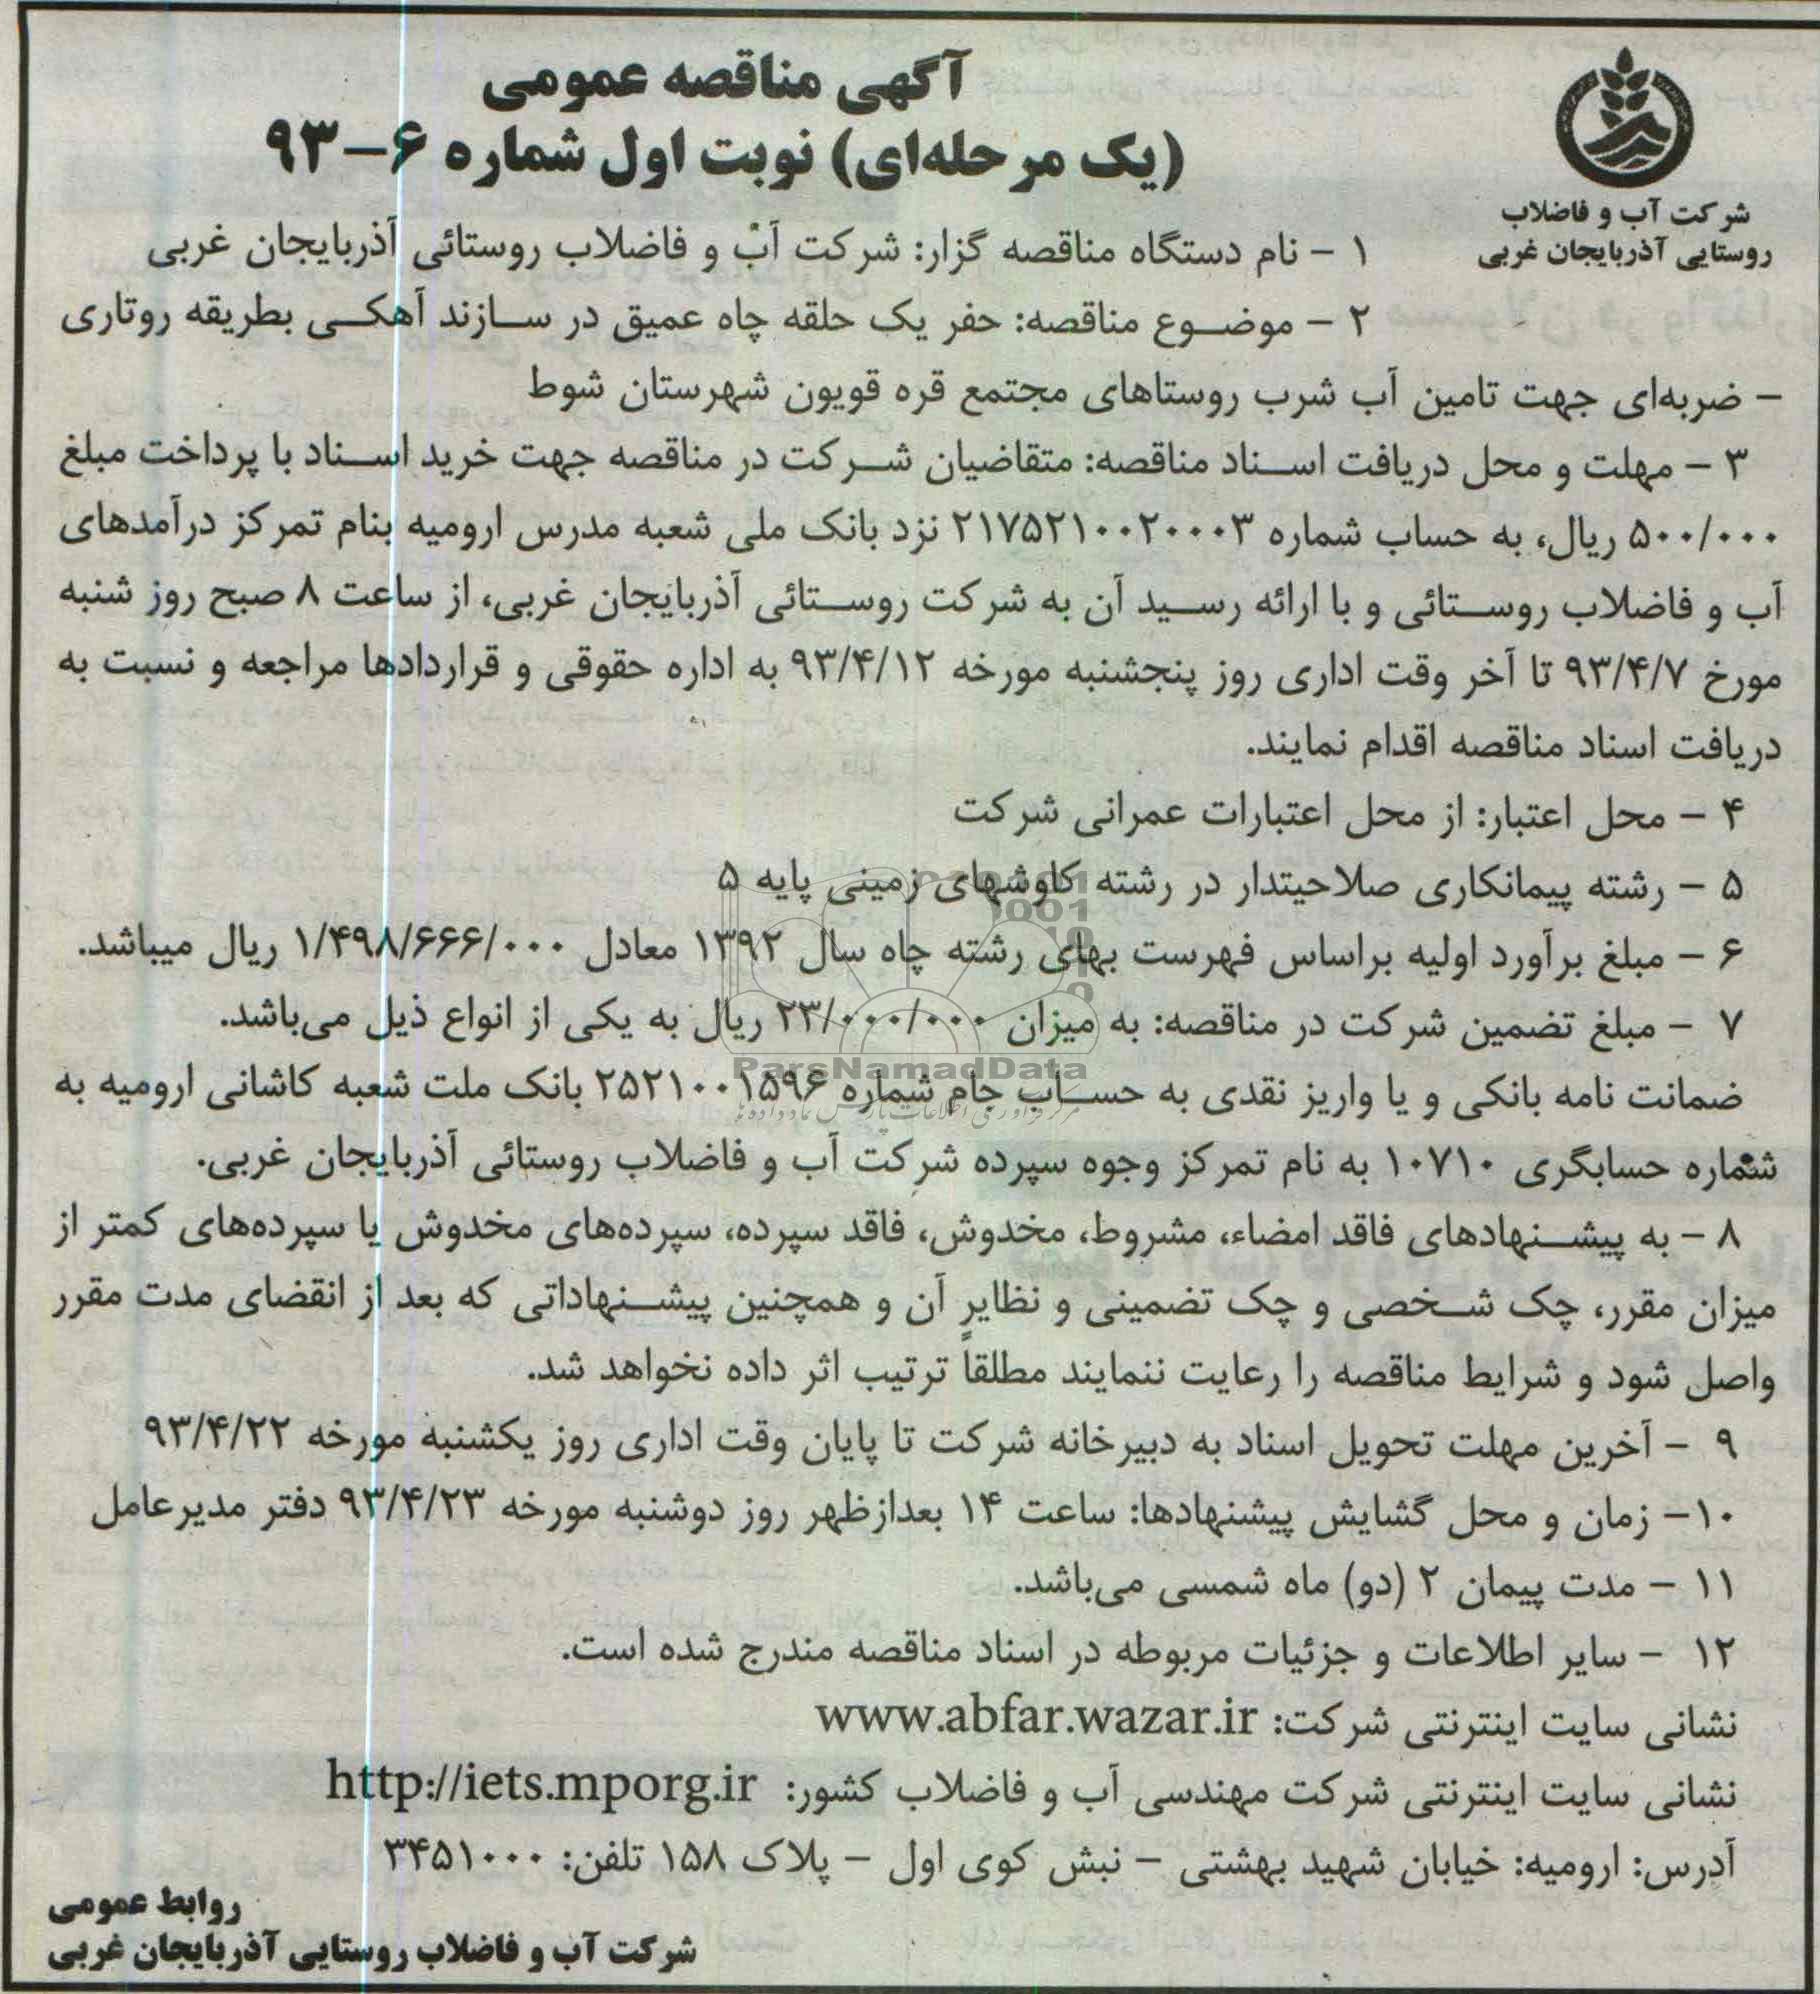 آگهی مناقصه عمومی
(یک مرحله‌ای) نوبت اول شماره ۶-۹۳
شرکت آب و فاضلاب
روستایی آذربایجان غربی
۱ - نام دستگاه مناقصه گزار: شرکت آب و فاضلاب روستائی آذربایجان غربی
۲ - موضوع مناقصه: حفر یک حلقه چاه عمیق در سازند آهکی بطریقه روتاری
- ضربه‌ای جهت تامین آب شرب روستاهای مجتمع قره قویون شهرستان شوط
۳ - مهلت و محل دریافت اسناد مناقصه: متقاضیان شرکت در مناقصه جهت خرید اسناد با پرداخت مبلغ
۵۰۰/۰۰۰ ریال، به حساب شماره ۲۱۷۵۲۱۰۰۲۰۰۰۳ نزد بانک ملی شعبه مدرس ارومیه بنام تمرکز درآمدهای
آب و فاضلاب روستائی و با ارائه رسید آن به شرکت روستائی آذربایجان غربی، از ساعت ۸ صبح روز شنبه
مورخ ۹۳/۴/۷ تا آخر وقت اداری روز پنجشنبه مورخه ۹۳/۴/۱۲ به اداره حقوقی و قراردادها مراجعه و نسبت به
دریافت اسناد مناقصه اقدام نمایند.
۴ - محل اعتبار: از محل اعتبارات عمرانی شرکت
۵ - رشته پیمانکاری صلاحیتدار در رشته کاوشهای زمینی پایه ۵
۶ - مبلغ برآورد اولیه براساس فهرست بهای رشته چاه سال ۱۳۹۲ معادل ۱/۴۹۸/۶۶۶/۰۰۰ ریال میباشد.
۷ - مبلغ تضمین شرکت در مناقصه: به میزان ۲۳/۰۰۰/۰۰۰ ریال به یکی از انواع ذیل می‌باشد.
ParsNamadData
ضمانت نامه بانکی و یا واریز نقدی به حساب جام شماره ۲۵۲۱۰۰۱۵۹۶ بانک ملت شعبه کاشانی ارومیه به
مرکز فرآوری اطلاعات پارس نماد داده‌ها
شماره حسابگری ۱۰۷۱۰ به نام تمرکز وجوه سپرده شرکت آب و فاضلاب روستائی آذربایجان غربی.
۸ - به پیشنهادهای فاقد امضاء، مشروط، مخدوش، فاقد سپرده، سپرده‌های مخدوش یا سپرده‌های کمتر از
میزان مقرر، چک شخصی و چک تضمینی و نظایر آن و همچنین پیشنهاداتی که بعد از انقضای مدت مقرر
واصل شود و شرایط مناقصه را رعایت ننمایند مطلقاً ترتیب اثر داده نخواهد شد.
۹ - آخرین مهلت تحویل اسناد به دبیرخانه شرکت تا پایان وقت اداری روز یکشنبه مورخه ۹۳/۴/۲۲
۱۰- زمان و محل گشایش پیشنهادها: ساعت ۱۴ بعدازظهر روز دوشنبه مورخه ۹۳/۴/۲۳ دفتر مدیرعامل
۱۱ - مدت پیمان ۲ (دو) ماه شمسی می‌باشد.
۱۲ - سایر اطلاعات و جزئیات مربوطه در اسناد مناقصه مندرج شده است.
نشانی سایت اینترنتی شرکت: www.abfar.wazar.ir
نشانی سایت اینترنتی شرکت مهندسی آب و فاضلاب کشور: http://iets.mporg.ir
آدرس: ارومیه: خیابان شهید بهشتی - نبش کوی اول - پلاک ۱۵۸ تلفن: ۳۴۵۱۰۰۰
روابط عمومی
شرکت آب و فاضلاب روستایی آذربایجان غربی